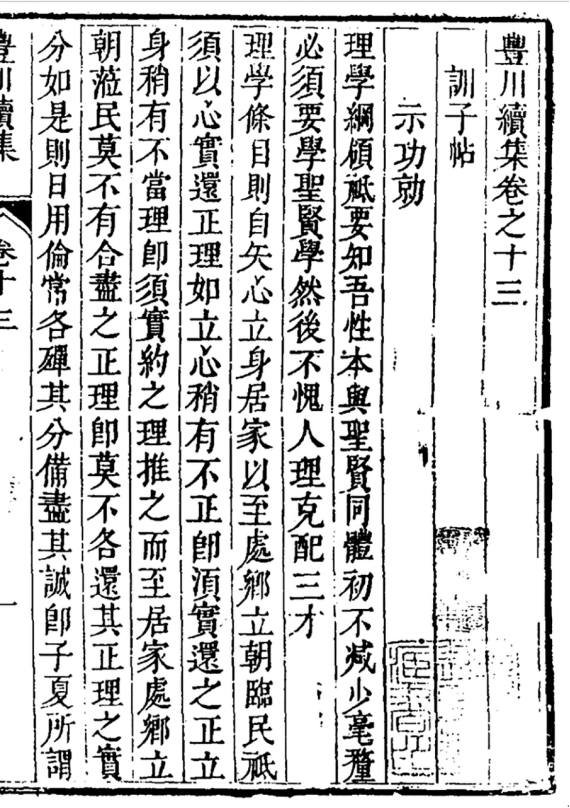 豐川續集卷之十三
訓子帖
示功勅
理學綱領祗要知吾性本與聖賢同體初不减少毫釐
必須要學聖賢學然後不愧人理克配三才
理學條目則自矢心立身居家以至處鄉立朝臨民祗
須以心實還正理如立心稍有不正卽須實還之正立
身稍有不當理卽須實約之理推之而至居家處鄉立
朝蒞民莫不有合盡之正理卽莫不各還其正理之實
分如是則日用倫常各殫其分備盡其誠卽子夏所謂
豐川續集
卷十三
一